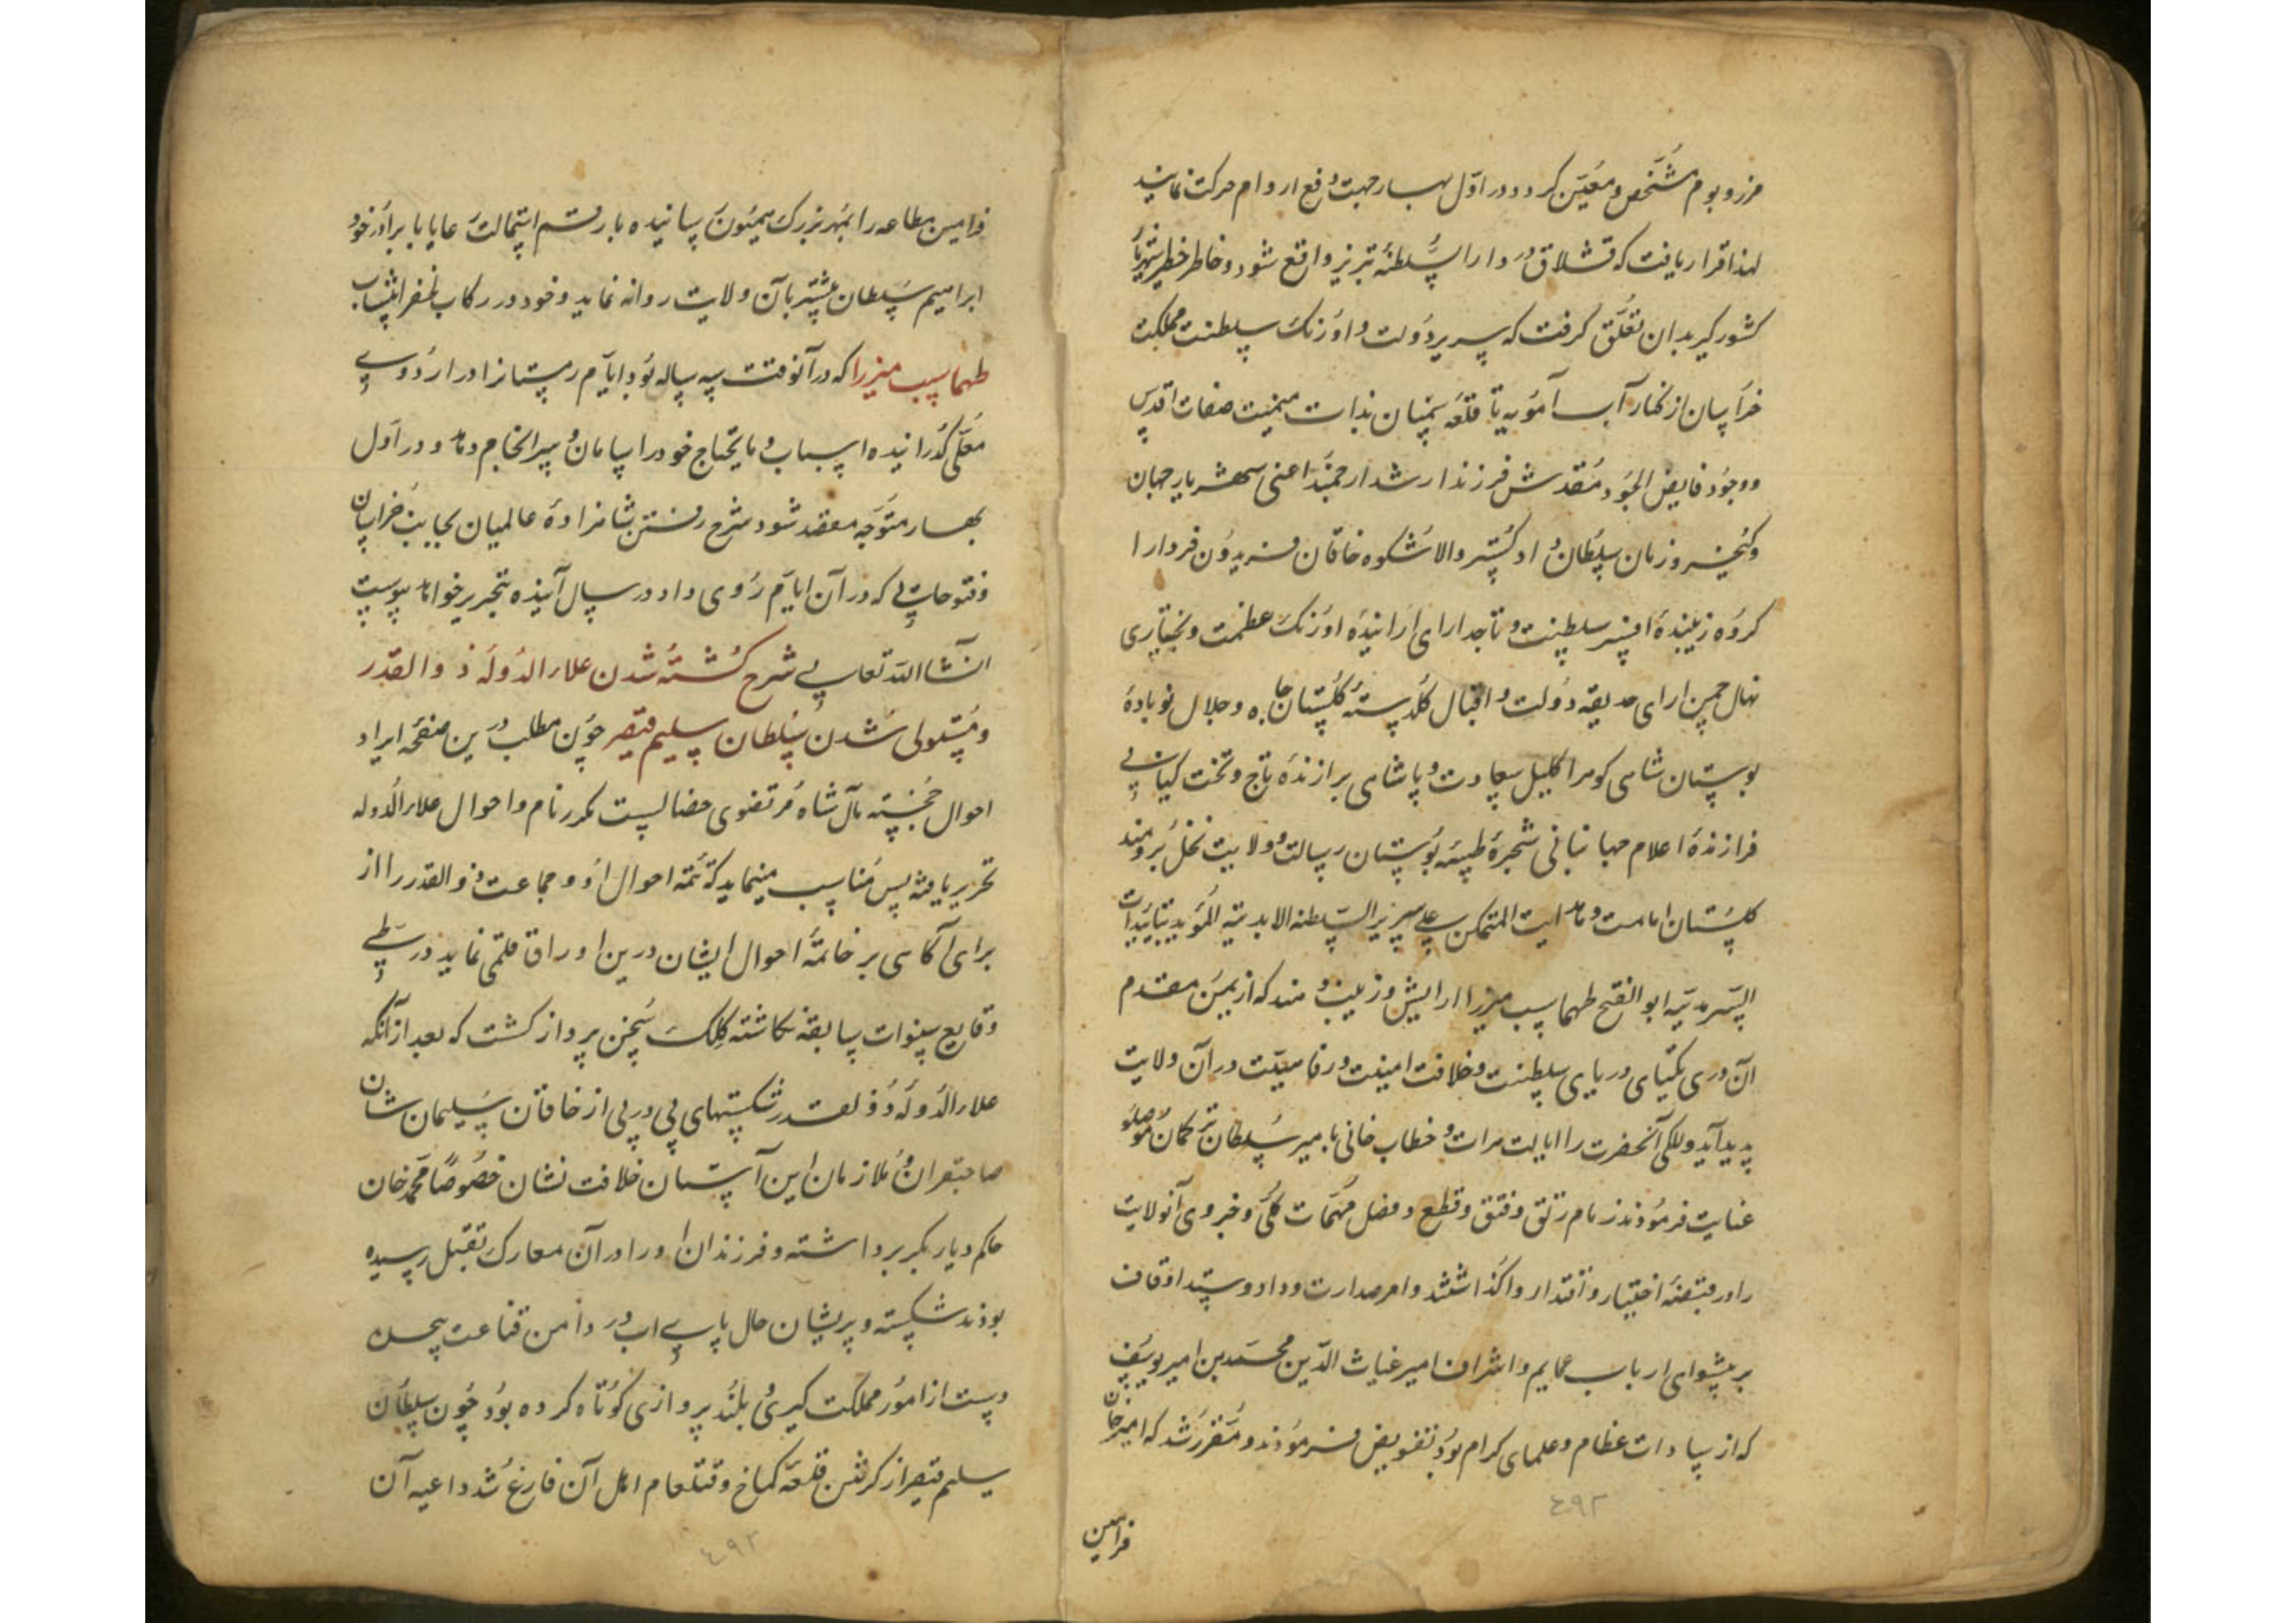 مرز و بوم مشخص و معین کردد و در اول بهار جهت دفع اروام حرکت نمایند
لهذا قرار یافت که قشلاق در دار السلطنهٔ تبریز واقع شود و خاطر خطیر شهریار
کشورکیر بدان تعلق کرفت که سریر دولت و اورنک سلطنت مملکت
خراسان از کنار آب آمویه تا قلعه سمنان بذات میمنت صفات اقدس
و وجود فایض الجود مقدس فرزند ارشد ارجمند اعنی شهریار جهان
و کیخسرو زمان سلطان داد کستر والا شکوه خاقان فریدون فر دارا
کروه زیبندهٔ افسر سلطنت و تاجدارای ارانیدهٔ اورنک عظمت و بختیاری
نهال چمن ارای حدیقهٔ دولت و اقبال کلدستهٔ کلستان جاه و جلال نوبادهٔ
بوستان شاهی کوهر اکلیل سعادت و پاشاهی برازندهٔ تاج و تخت کیانی
فرازندهٔ اعلام جهانبانی شجرهٔ طیبه بوستان رسالت و ولایت نخل برومند
کلستان امامت و هدایت المتمکن علی سریر السلطنه الابدیة المؤید بتاییدات
السرمدیه ابو الفتح طهماسب میرزا ارایش و زیب و هند که از یمن مقدم
آن دری یکتای دریای سلطنت و خلافت امنیت و رفاهیت در آن ولایت
پدید آید و للکی آنحضرت را ایالت هرات و خطاب خانی با میر سلطان ترکمان موصلو
عنایت فرموذند زمام رتق و فتق و قطع و فصل مهمات کلی و جزوی آنولایت
را در قبضهٔ اختیار و اقتدار واکذاشتند و امر صدارت و داد و ستد اوقاف
بر پیشوای ارباب عمایم و اشراف امیر غیاث الدین محمد بن امیر یوسف
که از سادات عظام و علمای کرام بود تفویض فرموذند و مقرر شد که امیر خان
فرامین
٤٩٢
فرامین مطاعه را بمهر بزرک میمون رسانیده با رقم استمالت عایا با برادر خود
ابراهیم سلطان پیشتر بآن ولایت روانه نماید و خود در رکاب ظفر انتساب
طهماسب میرزا که در آنوقت سه ساله بود ایام زمستانرا در اردوی
معلی کذرانیده اسباب و مایحتاج خود را سامان و سرانجام دهد و در اول
بهار متوجه مقصد شود شرح رفتن شاهزادهٔ عالمیان بجانب خراسان
و فتوحاتی که در آن ایام روی داد در سال آینده بتحریر خواهد پیوست
انشاالله تعالی شرح کشته شدن علاء الدوله ذوالقدر
و مستولی شدن سلطان سلیم قیصر چون مطلب درین صفحه ایراد
احوال خجسته مآل شاه مرتضوی خصالست مکرر نام و احوال علاء الدوله
تحریر یافته پس مناسب مینماید که تتمه احوال او و جماعت ذوالقدر را از
برای آکاهی بر خاتمهٔ احوال ایشان درین اوراق قلمی نماید در طی
وقایع سنوات سابقه نکاشته کلک سخن پرداز کشت که بعد از آنکه
علاء الدوله ذوالقدر شکستهای پی در پی از خاقان سلیمان شان
صاحبقران و ملازمان این آستان خلافت نشان خصوصا محمد خان
حاکم دیار بکر برداشته و فرزندان او را در آن معارک بقتل رسیده
بوذند شکسته و پریشان حال پای ادب در دامن قناعت پیچیده
دست از امور مملکت کیری و بلند پروازی کوتاه کرده بود چون سلطان
سلیم قیصر از کرفتن قلعه کماخ و قتلعام اهل آن فارغ شد داعیه آن
٤٩٢